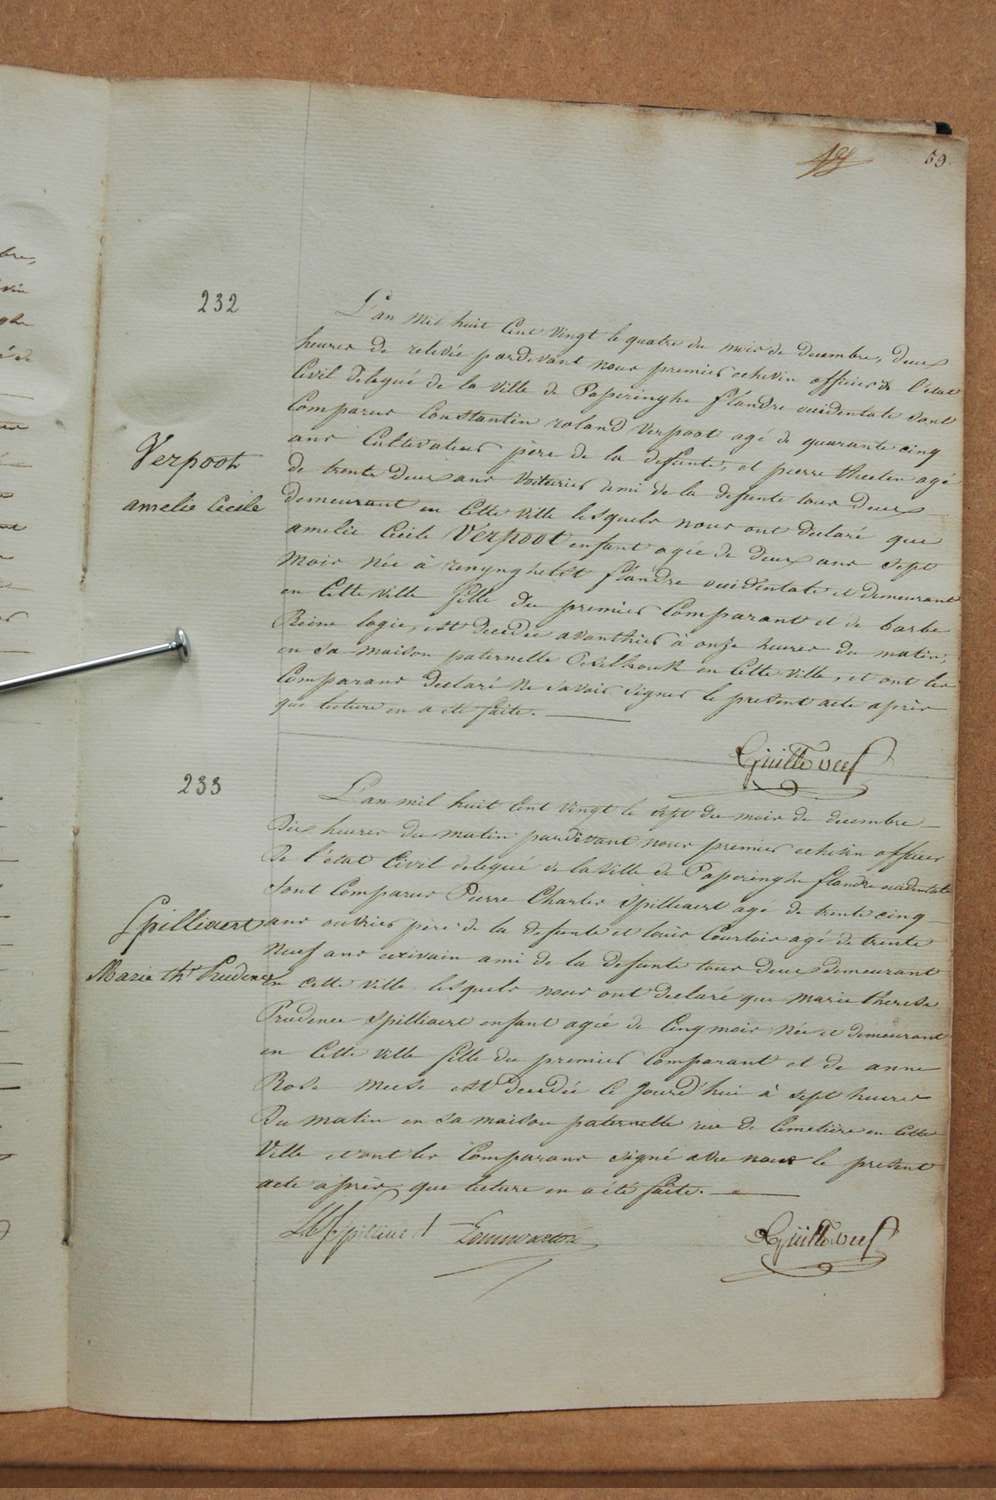 59.
232
Verpoot
amelie Cecile
L'an mil huit Cent vingt le quatre du mois de decembre, deux
heures de relevée pardevant nous premier echevin officier de l'état
Civil delegué de la ville de Poperinghe flandre occidentale sont
Comparus Constantin roland Verpoot agé de quarante cinq
ans Cultivateur père de la defunte, et pierre theelen agé
de trente deux ans voiturier ami de la defunte tous deux
demeurant en Cette ville lesquels nous ont declaré que
amelie Cecile Verpoot enfant agée de deux ans sept
mois née à renynghelst flandre occidentale et demeurant
en Cette ville fille du premier Comparant et de barbe
Reine logie, est decedée avanthier à onze heures du matin,
en sa maison paternelle en Cette ville, et ont les
Comparans declaré ne savoir signer le present acte après
que lecture en a été faite.
233
Spilliaert
Marie th. Prudence
L'an mil huit Cent vingt le sept du mois de decembre
dix heures du matin pardevant nous premier echevin officier
de l'état Civil delegué de la ville de Poperinghe flandre occidentale
sont Comparus Pierre Charles Spilliaert agé de trente cinq
ans ouvrier père de la defunte et louis Courtois agé de trente
neuf ans ecrivain ami de la defunte tous deux demeurant
en cette ville lesquels nous ont declaré que marie therese
Prudence Spilliaert enfant agée de Cinq mois née et demeurant
en Cette ville fille du premier Comparant et de anne
Rose meese est decedée le jourd'hui à sept heures
du matin en sa maison paternelle rue de Cemetière en Cette
Ville et ont les Comparans signé avec nous le present
acte après que lecture en a été faite.